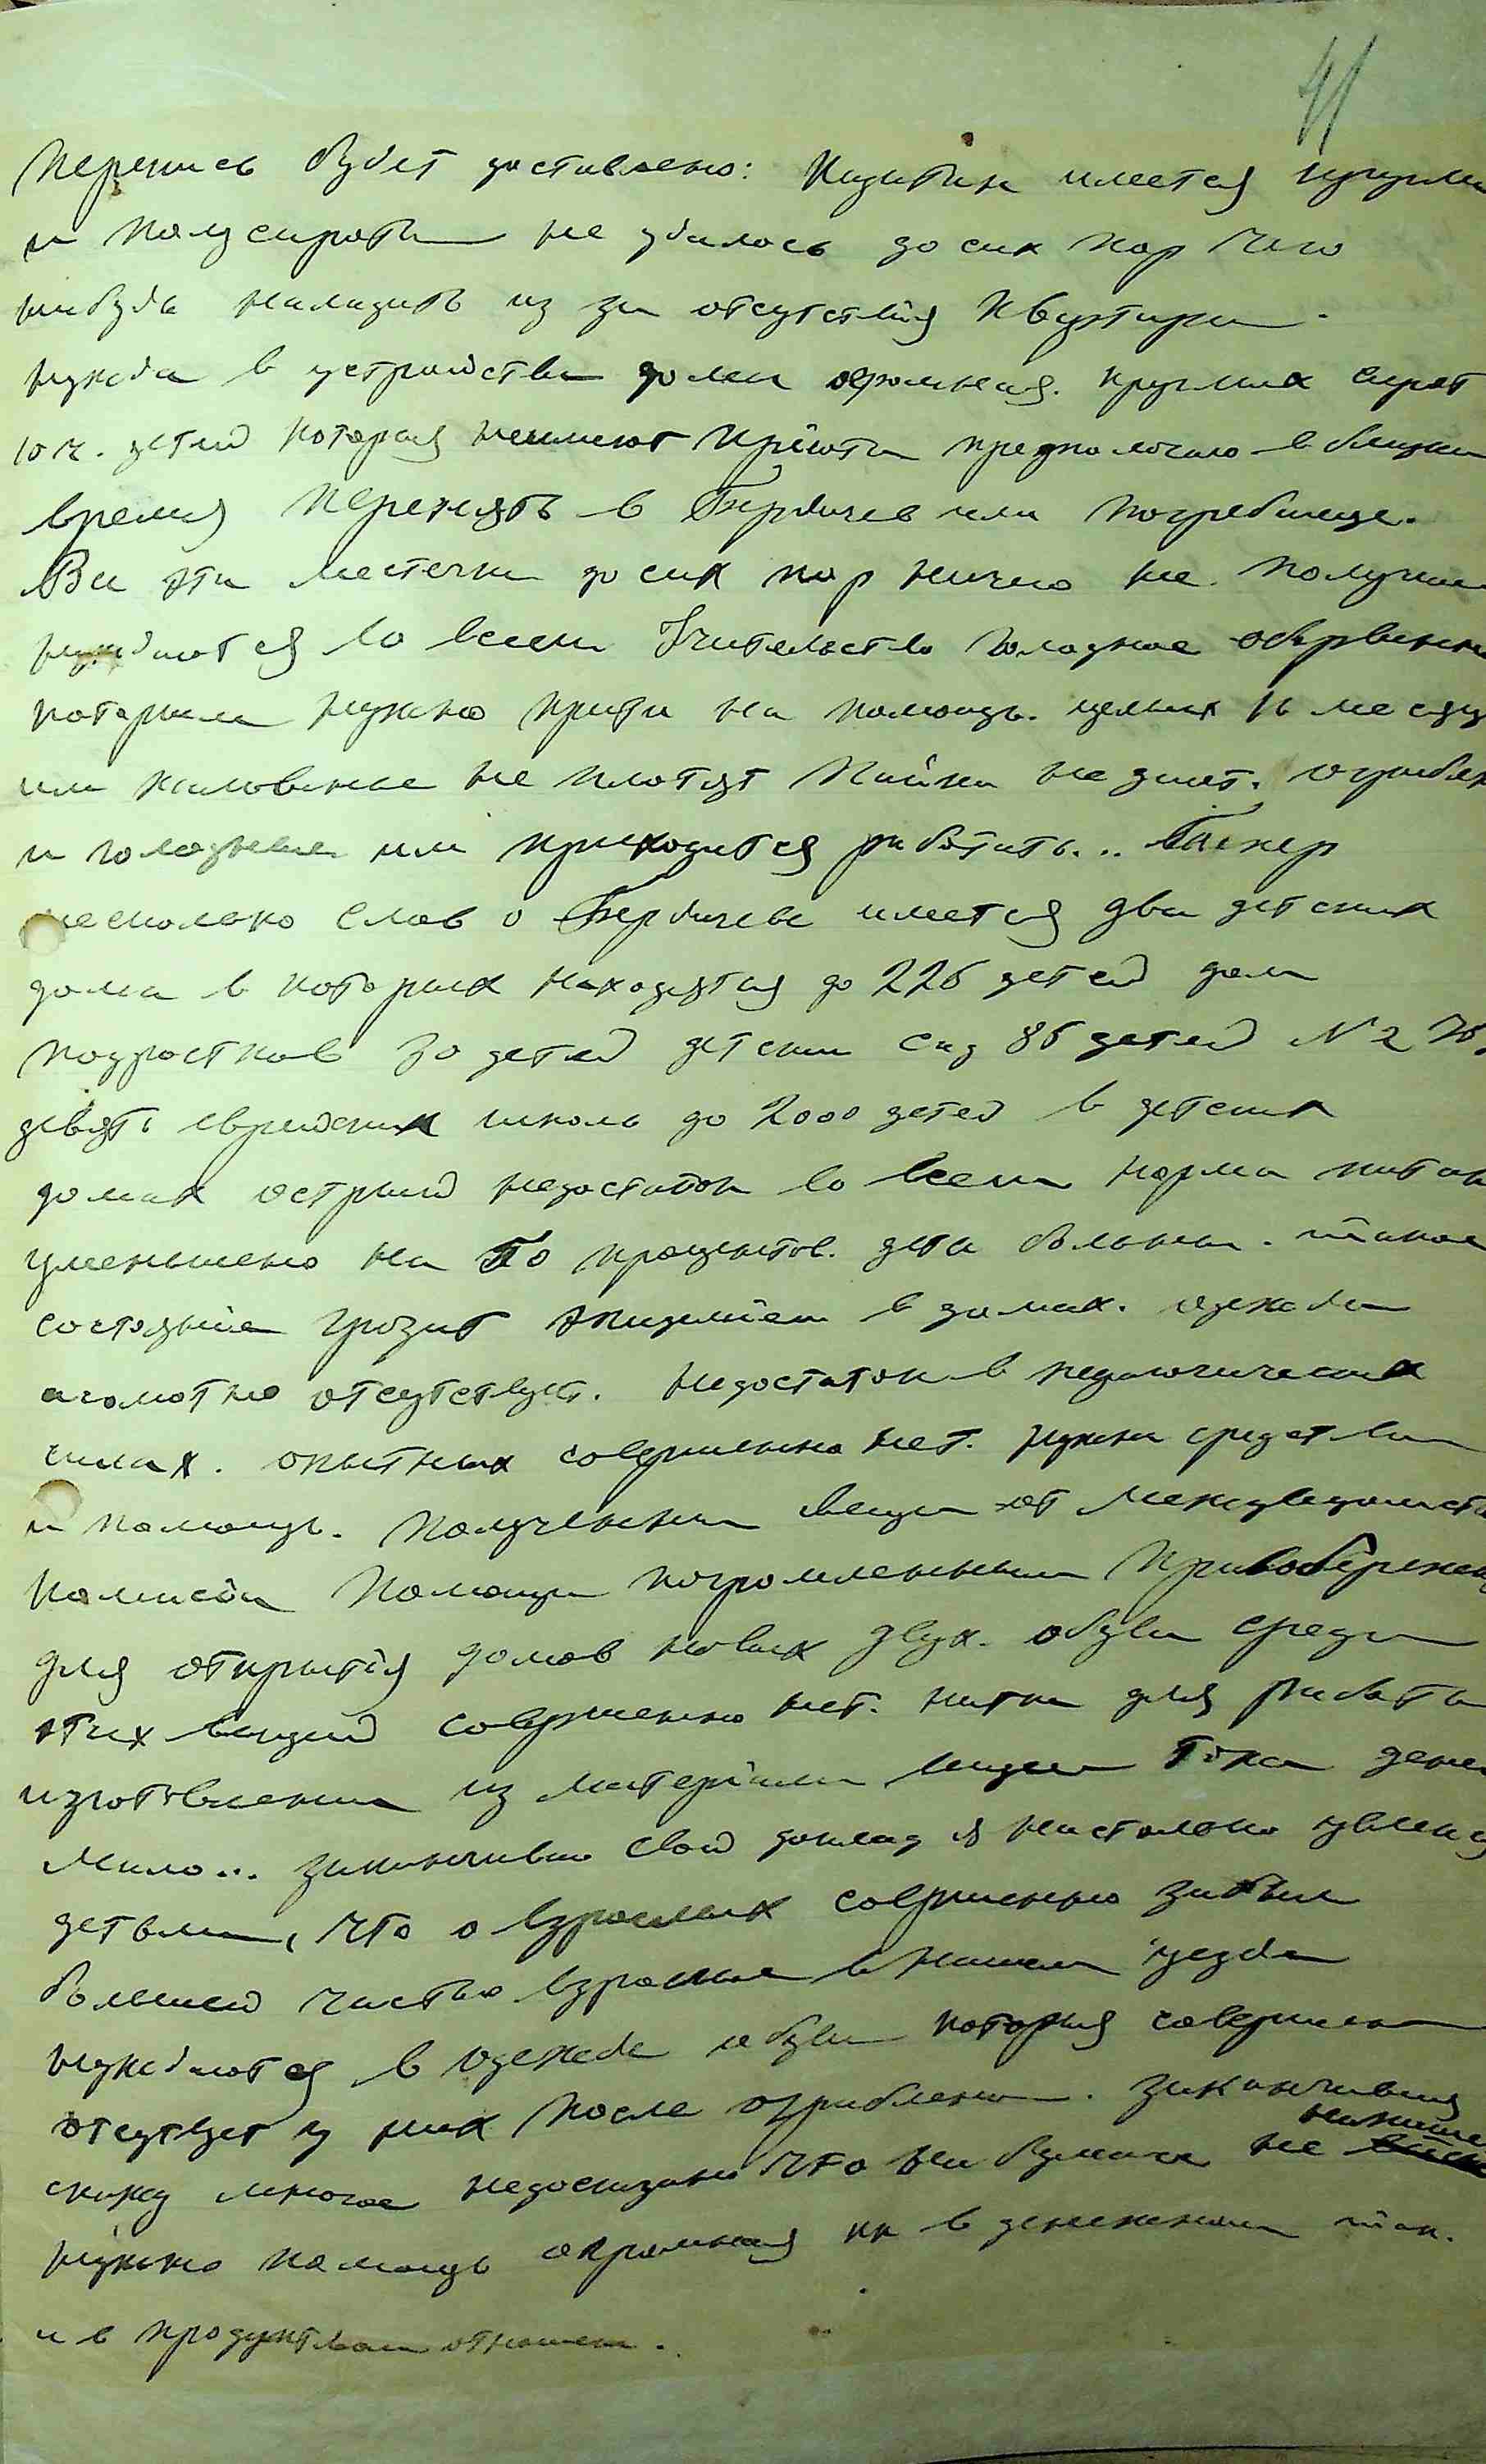 41
перепись будет доставлено: имеется
и полусироты не удалось до сих пор чего
нибудь наладить из за отсутствія квартиры.
нужда в устройстве дома огромная. круглих сирот
10 ч. детей которыя неимеют пріюта предпологаю в
время перенять в Бердичев или Погребище.
Все эти местечки до сих пор ничего не получил
нуждаются во всем Учительство голодное
которым нужно прити на помощь. целых месяц
им жалованье не плотят Пайки не дают.
и голодные им приходится работать... Тепер
несколько слов о Бердичеве имеется два детских
дома в которых находятся до 226 детей дом
подростков 30 детей детски сад 86 детей N 2
девять еврейских школь до 2000 детей в детских
домах острый недостаток во всем норма питан
уменьшено на процентов. дети больны. такое
состояніе грозит эпидеміем в домах. одежда
отсутствует. недостаток в педагогических
силах. опытных совершенно нет. нужны средства
и помощь. Полученны вещи от Междуведомств
комисіи Помощи погромленным Правобережн
для открытія домов новых двух. обуви среди
этих вещей совершенно нет. нитки для работы
изготовлении из матеріала тоже
мало... закончивши свой доклад я настолько
детьми, что о взрослых совершенно забыл
большей частью взрослые в нашем уезде
нуждаются в одежде обуви которыя совершенно
отсутвует у них после ограбления. заканчивая
скажу многое недосказано что на бумаге не
нужно помощь огромная как в денежном так.
и в продуктвом отношен.